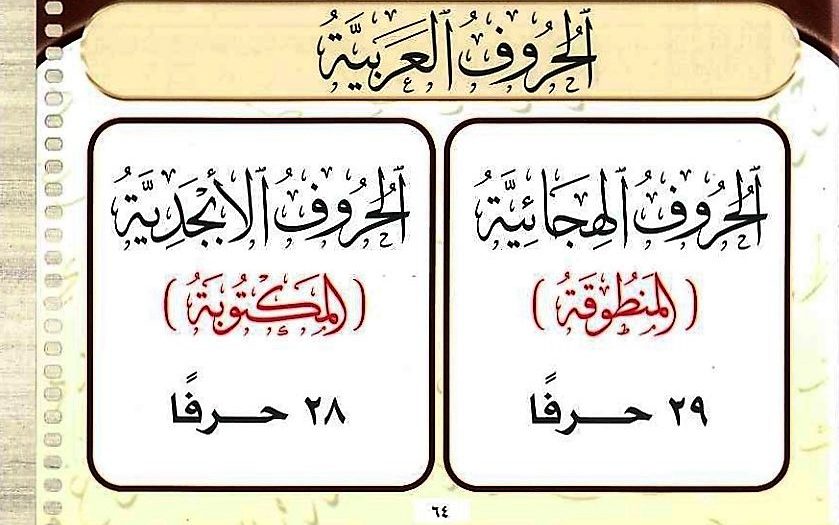 الحُرُوفُ العَرَبِيَّةُ
الحُرُوفُ الهِجَائِيَّةُ
(المَنْطُوقَةُ)
٢٩ حرفًا
الحُرُوفُ الأَبْجَدِيَّةُ
(المَكْتُوبَةُ)
٢٨ حرفًا
٦٤